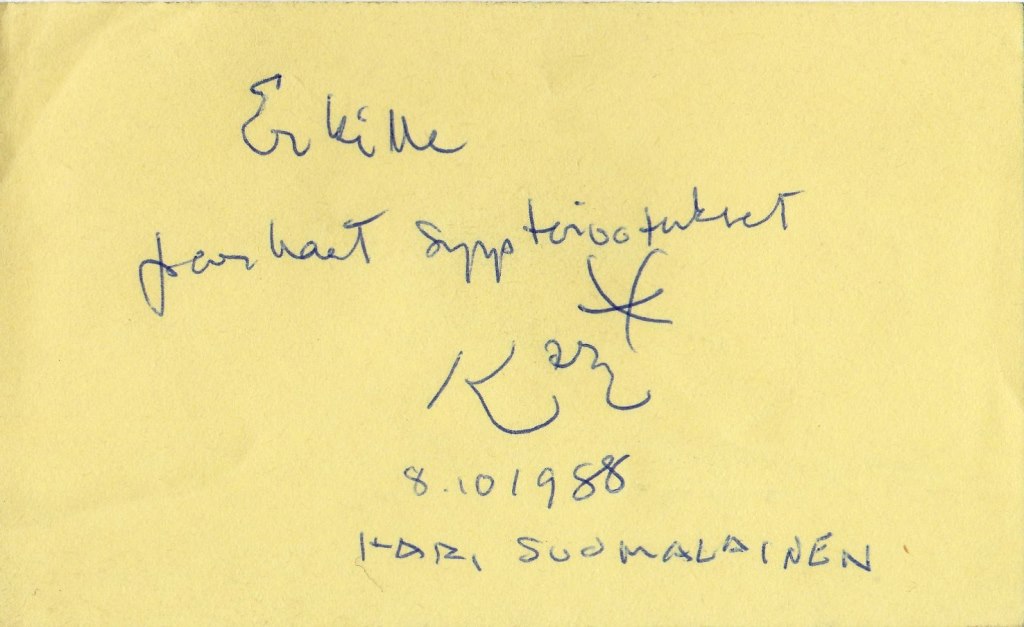 Erkille
parhaat syystoivotukset
Kari
8.10 1988
KARI SUOMALAINEN